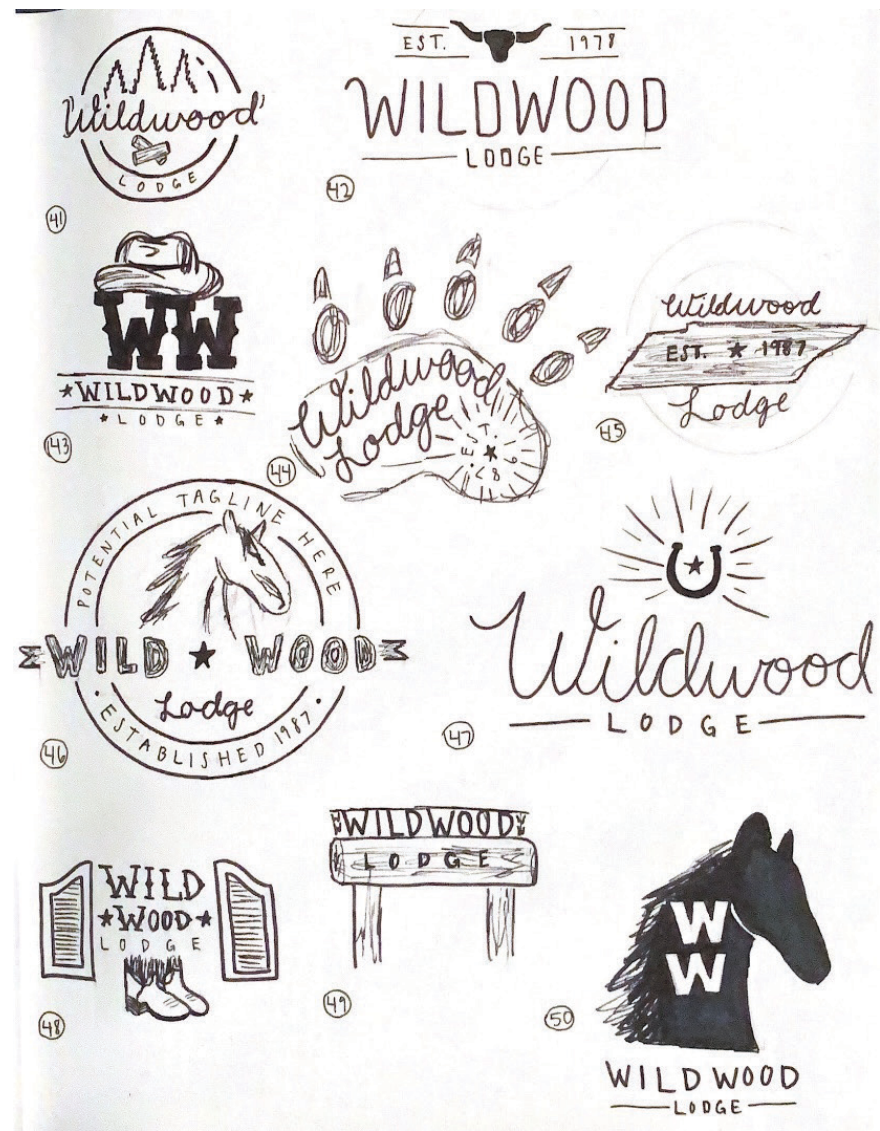 Wildwood
LODGE
41
EST. 1978
WILDWOOD
LODGE
42
WW
★WILDWOOD★
★LODGE★
43
Wildwood
Lodge
44
Wildwood
EST. ★ 1987
Lodge
45
POTENTIAL TAGLINE HERE
WILD ★ WOOD
Lodge
·ESTABLISHED 1987·
46
Wildwood
LODGE
47
WILD
★WOOD★
LODGE
48
WILDWOOD
LODGE
49
W
W
50
WILDWOOD
LODGE